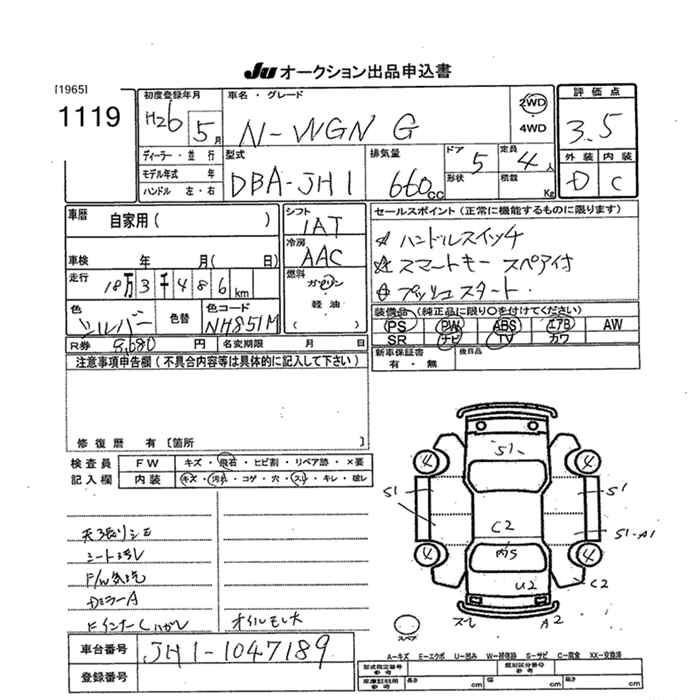 JU オークション出品申込書
[1965]
1119
初度登録年月
H26 5月
車名・グレード
N-WGN G
2WD
・
4WD
評価点
3.5
外装 内装
D C
ディーラー・並行
モデル年式 年
ハンドル 左・右
型式
DBA-JH1
排気量
660cc
ドア 5
形状
定員 4人
積載 Kg
車暦
自家用( )
車検 年 月( 日)
走行 18万3千486km
色 シルバー
色替
色コード NH851M
シフト
IAT
冷房
AAC
燃料
ガソリン
・
軽油
( )
セールスポイント(正常に機能するものに限ります)
☆ ハンドルスイッチ
☆ スマートキー スペア付
☆ プッシュスタート
装備品(純正品に限り○を付けてください)
PS PW ABS エアB AW
SR ナビ TV カワ
R券 9,680円
名変期限 月 日
新車保証書
有・無
後日品
注意事項申告欄(不具合内容等は具体的に記入して下さい)
修復暦 有[箇所 ]
検査員
記入欄
FW キズ・飛石・ヒビ割・リペア跡・×要
内装 キズ・汚れ・コゲ・穴・スレ・キレ・破レ
天張りシミ
シート汚レ
F/W気泡
DミラーA
Fインナーしハガレ
オイルモレ大
4 4
S1
S1
S1
C2
S1-A1
4 4
U2
C2
スレ
A2
スペア
A-キズ E-エクボ U-凹み W-補修跡 S-サビ C-腐食 XX-交換済
車台番号 JH1-1047189
登録番号
型式指定番号
参考
類別区分番号
参考
車庫証明用
参考
長さ cm
幅 cm
高さ cm